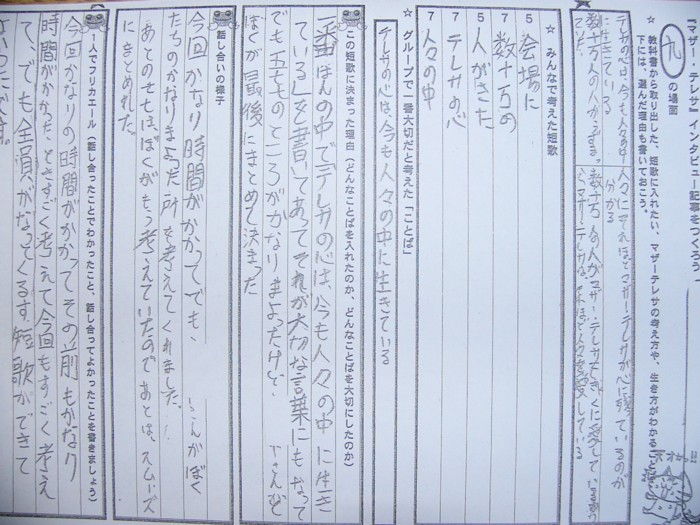 「マザー・テレサ」インタビュー記事をつくろう
九の場面
☆教科書から取り出した、短歌に入れたい、マザーテレサの考え方や、生き方がわかることば
下には、選んだ理由も書いておこう。
テレサの心は、今も人々の中
に生きている
数十万人の人が
ていた
人々にそれほどマザーテレサが心に残っているのが
分かる
数十万人の人がマザーテレサ
☆みんなで考えた短歌
5 会場に
7 数十万の
5 人がきた
7 テレサの心
7 人々の中
☆グループで一番大切だと考えた「ことば」
テレサの心は、今も人々の中に生きている
この短歌に決まった理由（どんなことばを入れたのか、どんなことばを大切にしたのか）
一番ほんの中でテレサの心は、今も人々の中に生き
ている」を書いてあってそれが大切な言葉にもなって
でも五七五のところがかなりまよったけど、
ぼくが最後にまとめて決まった
話し合いの様子
今回かなり時間がかかってでも、 さんがぼく
たちのかなりまよった所を考えてくれました。
あとの七七は、ぼくがもう考えていたのであとは、スムーズ
にまとめれた。
1人でフリカエール（話し合ったことでわかったこと、話し合ってよかったことを書きましょう）
今回かなりの時間がかかってその前もかなり
時間がかかったときすごく考えて今回もすごく考え
て、でも全員がなってくるす短歌ができて